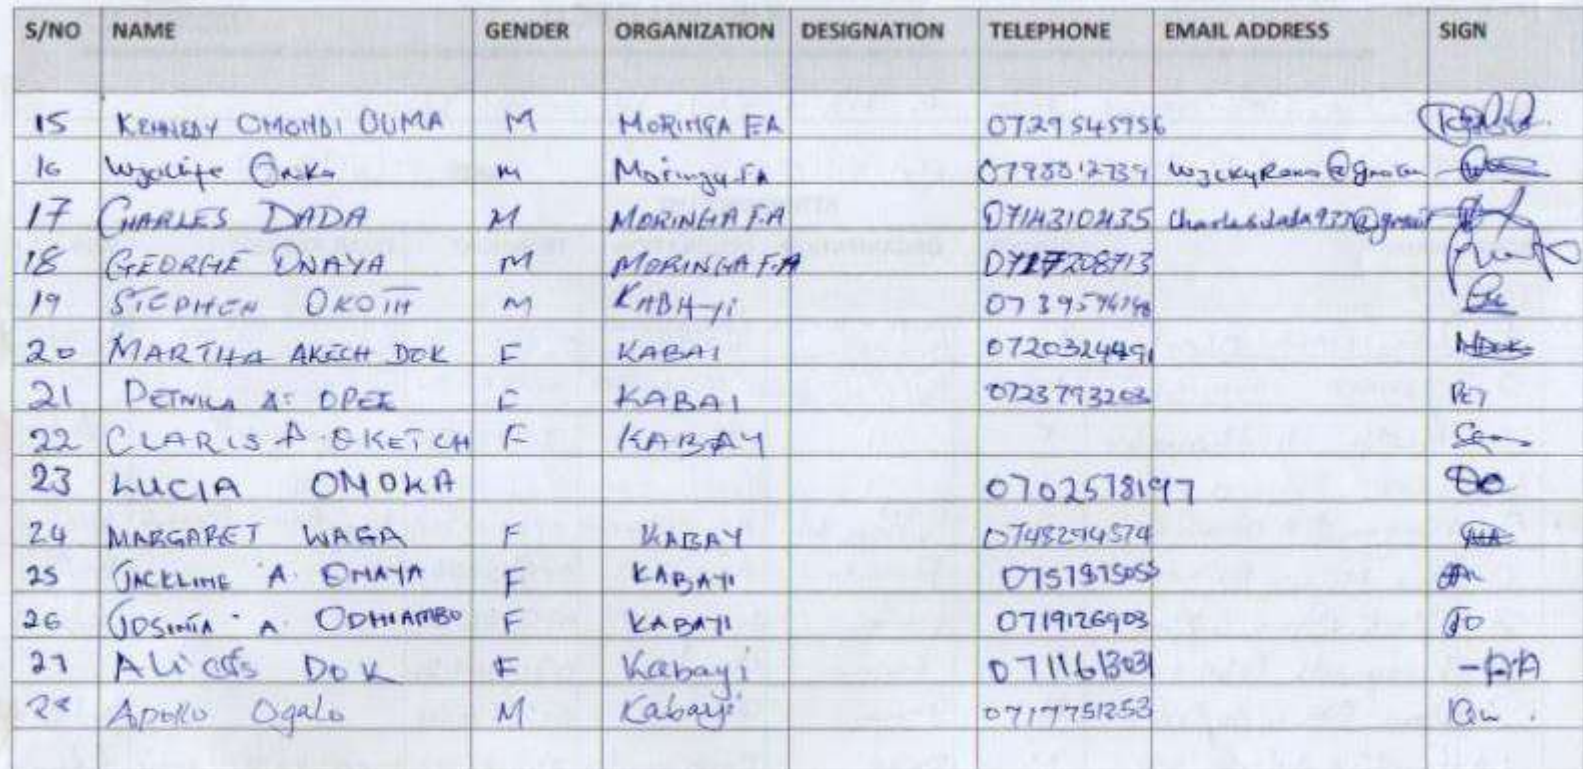 S/NO NAME GENDER ORGANIZATION DESIGNATION TELEPHONE EMAIL ADDRESS SIGN
15 KENNEDY OMONDI OUMA M MORINGA FA 0729545956
16 Wycliffe M Moringa FA 0798812739
17 CHARLES DADA M MORINGA F.A 0714310435
18 GEORGE ONAYA M MORINGA F.A 0717208713
19 STEPHEN OKOTH M
20 MARTHA AKECH DOK F KABAI 0720324491
21 OPEE F KABAI 0723793203 PET
22 CLARIS A OKETCH F KABAY
23 LUCIA OMOKA 0702578197
24 MARGARET WAGA F KABAY 0748294574
25 JACKLINE A. ONAYA F KABAYI
26 A. ODHIAMBO F KABAYI 0719126903 JO
27 DOK F Kabayi 0711613031 -AA
28 Apollo Ogalo M Kabayi 0717751253